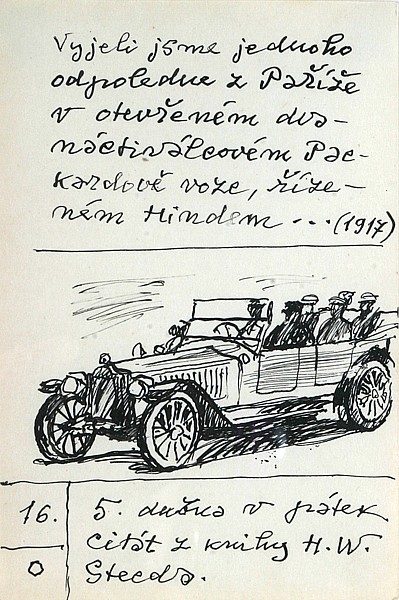 Vyjeli jsme jednoho
odpoledne z Paříže
v otevřeném dva-
náctiválcovém Pac-
kardově voze, říze-
ném Hindem ... (1917)
16.
O
5. v pátek
Citát z knihy H.W.
Steeda.